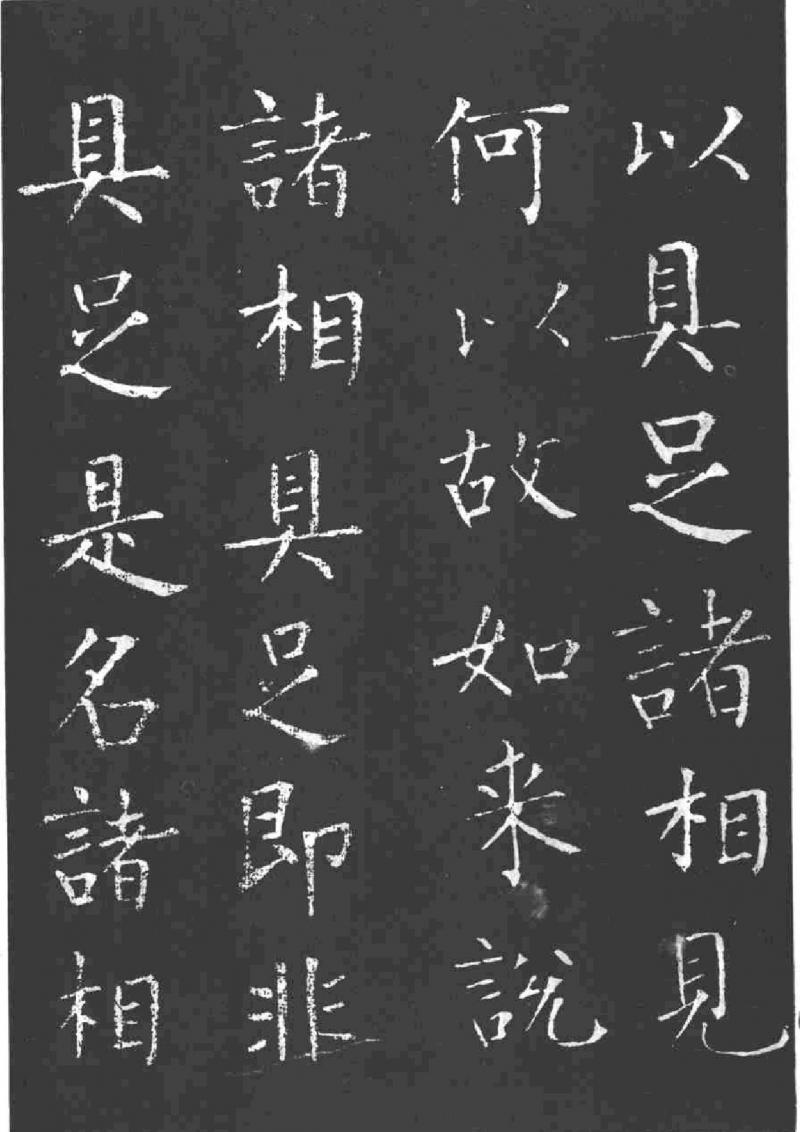 以具足諸相見
何以故如来說
諸相具足即非
具足是名諸相